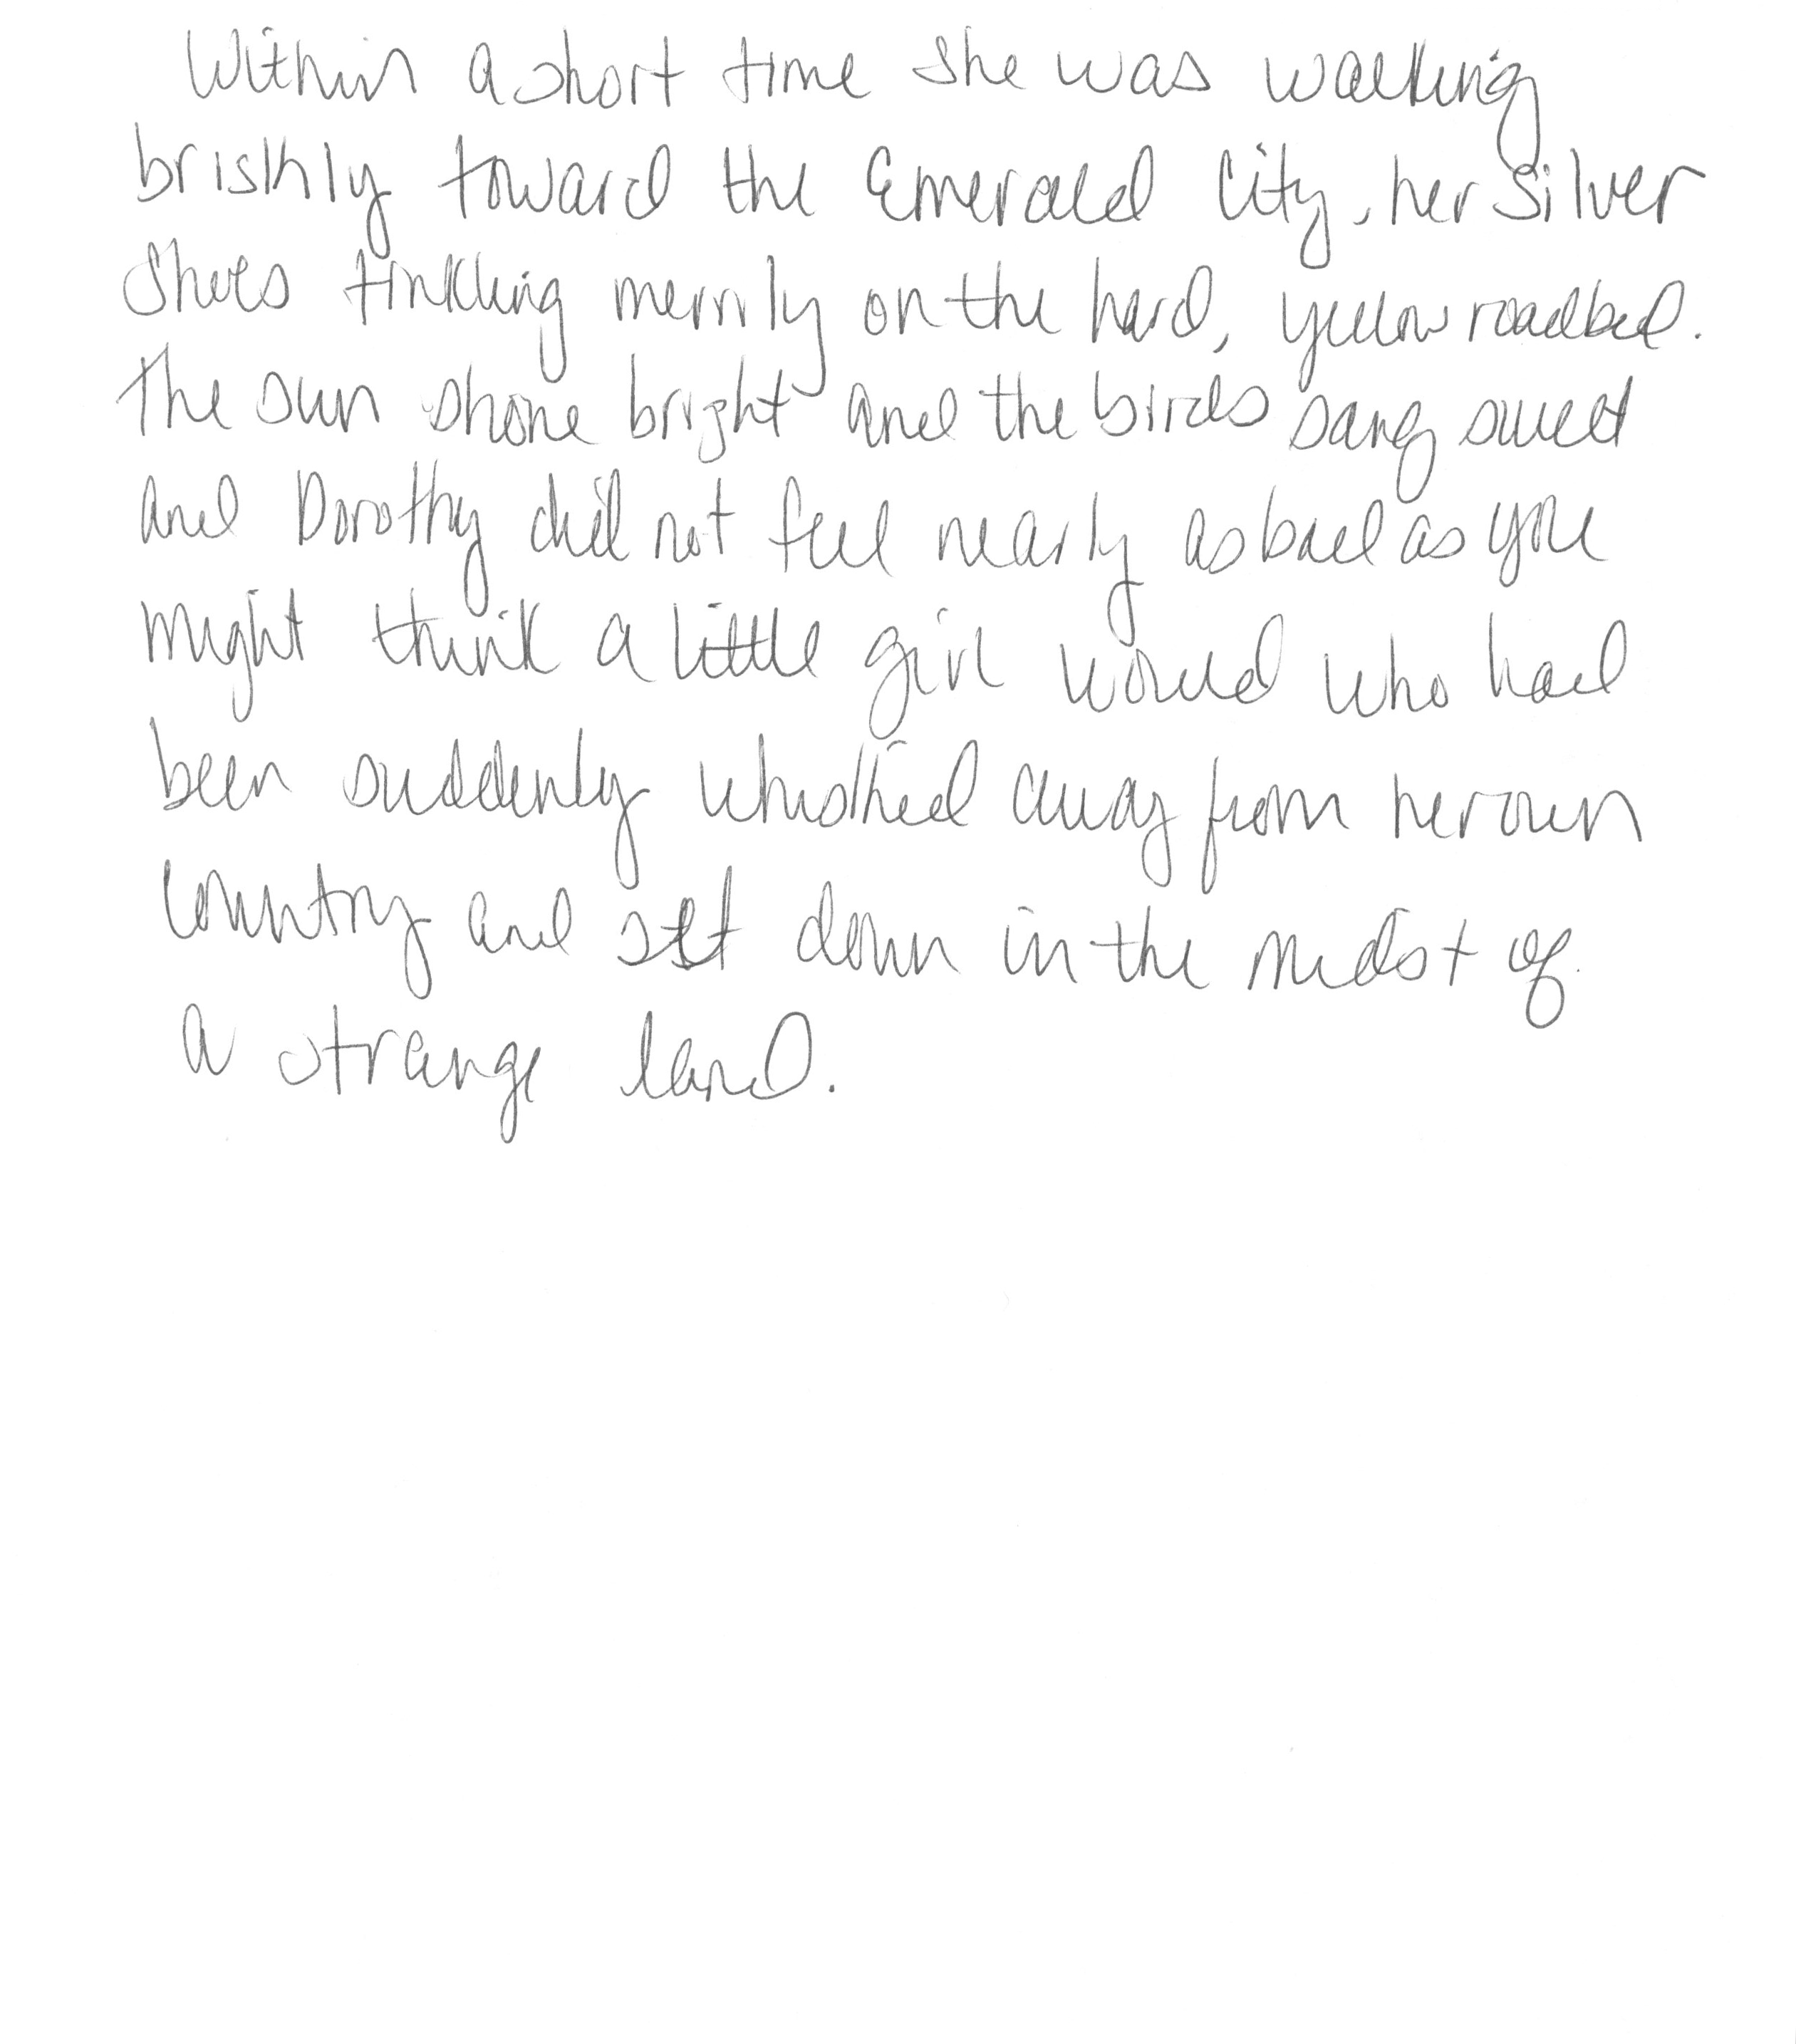 Within a short time she was walking
briskly toward the Emerald City, her Silver
Shoes tinkling merrily on the hard, yellow roadbed.
The sun shone bright and the birds sang sweet
and Dorothy did not feel nearly as bad as you
might think a little girl would who had
been suddenly whisked away from her own
country and set down in the midst of
a strange land.